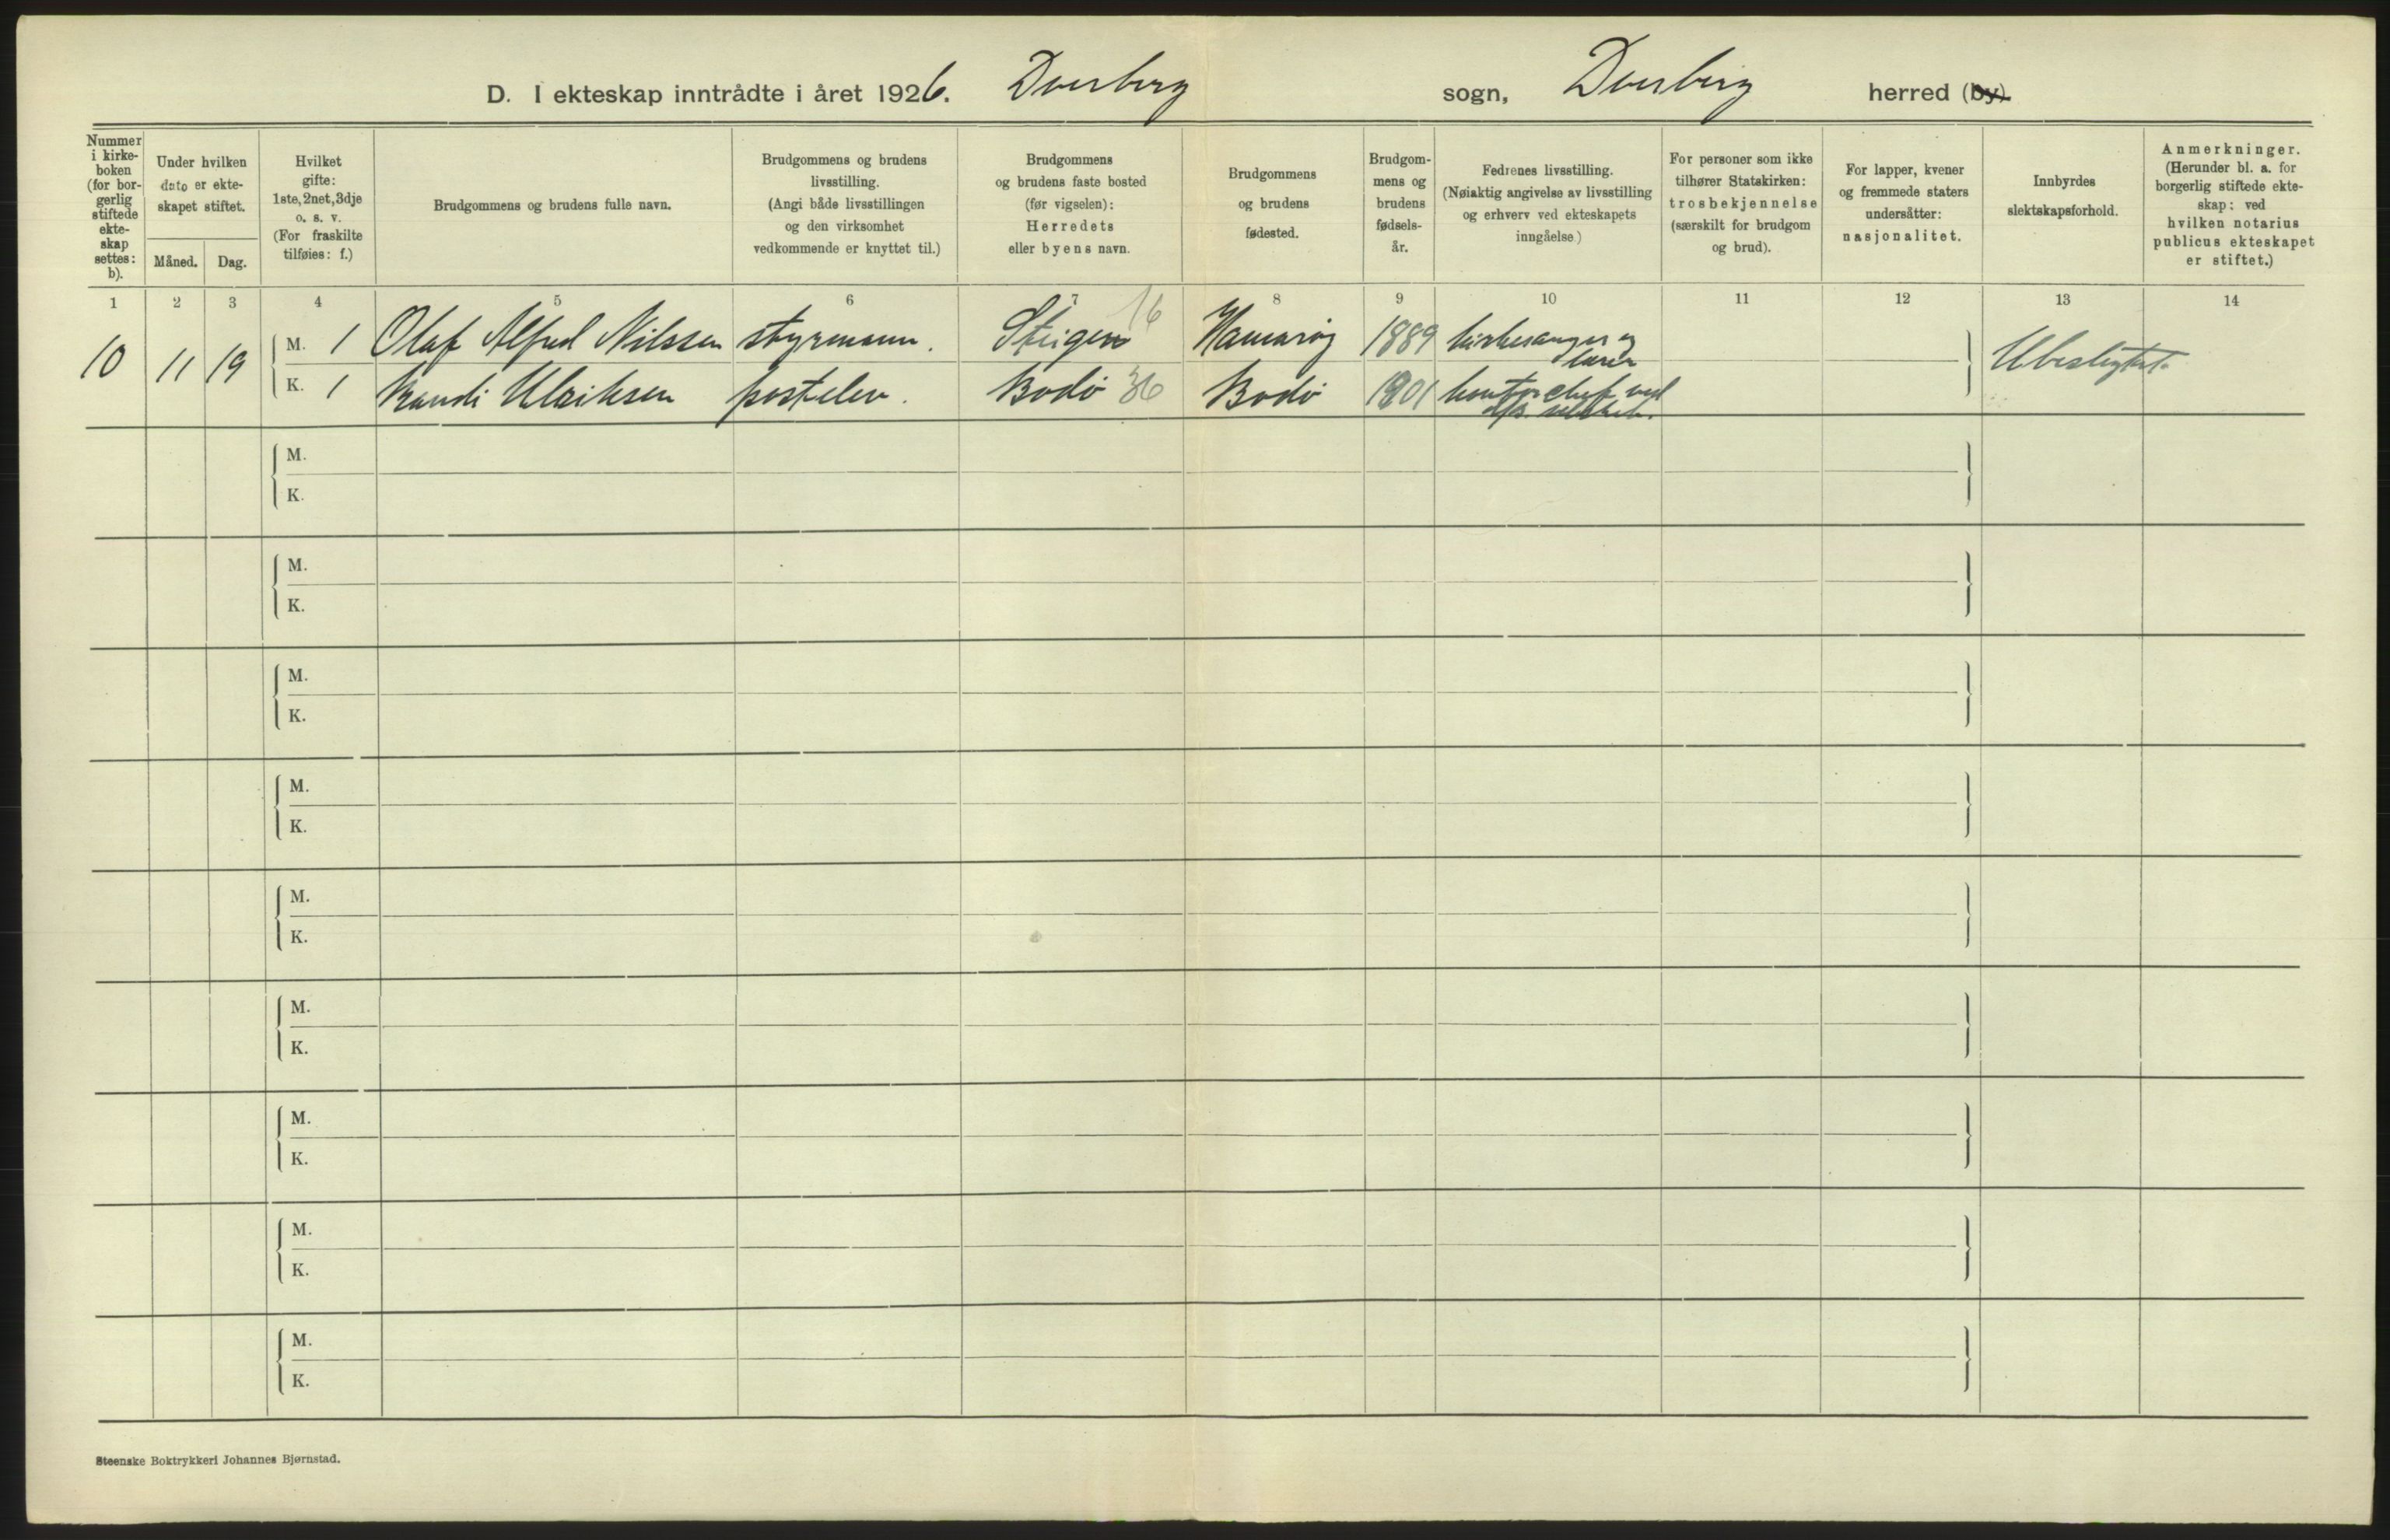 D. I ekteskap inntrådte i året 1926. Dverberg sogn, Dverberg herred (by)
Nummer i kirke-boken (for bor-gerlig stiftede ekte-skap settes: b).
Under hvilken dato er ekte-skapet stiftet.
Måned. Dag.
Hvilket gifte: 1ste, 2net, 3dje o. s. v. (For fraskilte tilføies: f.)
Brudgommens og brudens fulle navn.
Brudgommens og brudens livsstilling. (Angi både livsstillingen og den virksomhet vedkommende er knyttet til.)
Brudgommens og brudens faste bosted (før vigselen): Herredets eller byens navn.
Brudgommens og brudens fødested.
Brudgom-mens og brudens fødsels-år.
Fedrenes livsstilling. (Nøiaktig angivelse av livsstilling og erhverv ved ekteskapets inngåelse)
For personer som ikke tilhører Statskirken: trosbekjennelse (særskilt for brudgom og brud).
For lapper, kvener og fremmede staters undersåtter: nasjonalitet.
Innbyrdes slektskapsforhold.
Anmerkninger. (Herunder bl. a. for borgerlig stiftede ekte-skap: ved hvilken notarius publicus ekteskapet er stiftet.)
1 2 3 4 5 6 7 8 9 10 11 12 13 14
10 11 19 M. 1 Olaf Alfred Nilssen styrmann. Steigen 16 Hamarøy 1889 kirkesanger og lærer Ubeslegtet.
K. 1 Randi Ulriksen postelev. Bodø 36 Bodø 1901 kontorchef ved
M.
K.
M.
K.
M.
K.
M.
K.
M.
K.
M.
K.
M.
K.
M.
K.
M.
K.
Steenske Boktrykkeri Johannes Bjørnstad.